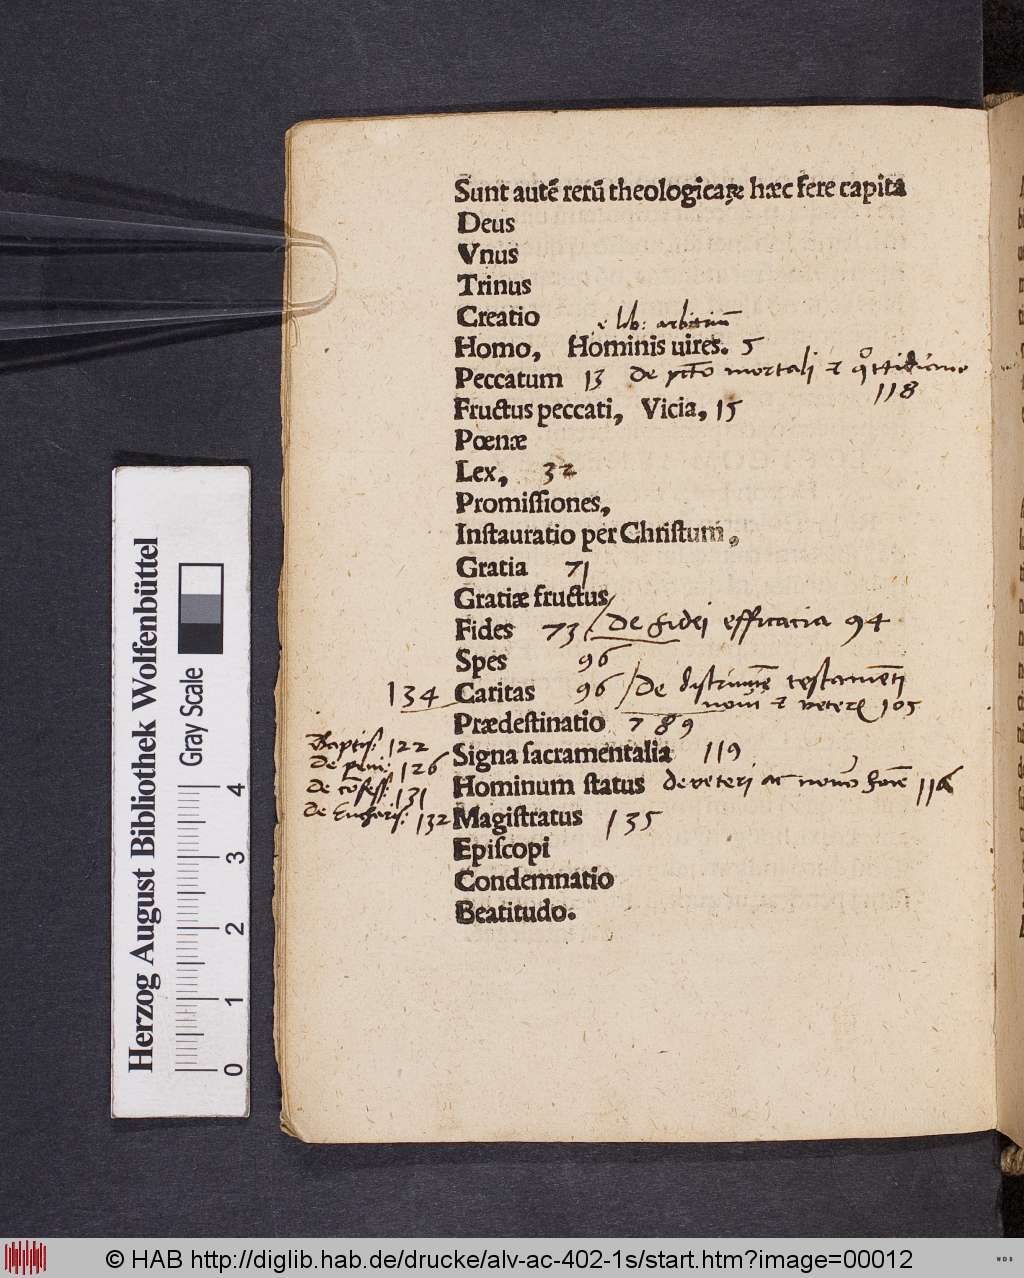 Sunt autē rerū theologicaꝝ hæc fere capita
Deus
Vnus
Trinus
Creatio
lib: arbitriū
Homo, Hominis uires. 5
Peccatum 13 de pctō mortali et qͦttidiano
118
Fructus peccati, Vicia, 15
Pœnæ
Lex, 32
Promiſſiones,
Inſtauratio per Chriſtum,
Gratia 71
Gratiæ fructus
Fides 73 / de fidei efficacia 94
Spes 96
134 Caritas 96 / de testamēti
et 105
Prædeſtinatio 7 8 9
Baptis: 122
Signa ſacramentalia 119
de peni: 126
Hominum ſtatus de veteri ac novo hoīe 116
de cōfess: 131
Magiſtratus 135
de Eucharis: 132
Epiſcopi
Condemnatio
Beatitudo.
Herzog August Bibliothek Wolfenbüttel
Gray Scale
0 1 2 3 4
© HAB http://diglib.hab.de/drucke/alv-ac-402-1s/start.htm?image=00012